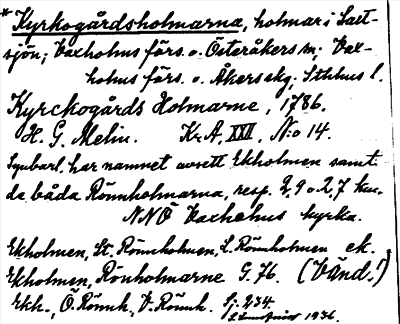 * Kyrkogårdsholmarna, holmar i Salt-
sjön; Vaxholms förs. o. Österåkers sn; Vax-
holms förs. o. Åkers skg; Sthlms l.
Kyrckogårds Holmarne, 1786.
H. G. Melin. Kr.A, XXII, N:o 14.
Synbarl. har namnet avsett Ekholmen samt
de båda Rönnholmarna, resp. 2,9 o 2,7 km.
NNÖ Vaxholms kyrka.
Ekholmen, St. Rönnholmen, L. Rönnholmen ek.
Ekholmen, Rönholmarne G. 76. (Vänd!)
Ekh., Ö. Rönnh., V. Rönnh. Sj. 234.
1936.